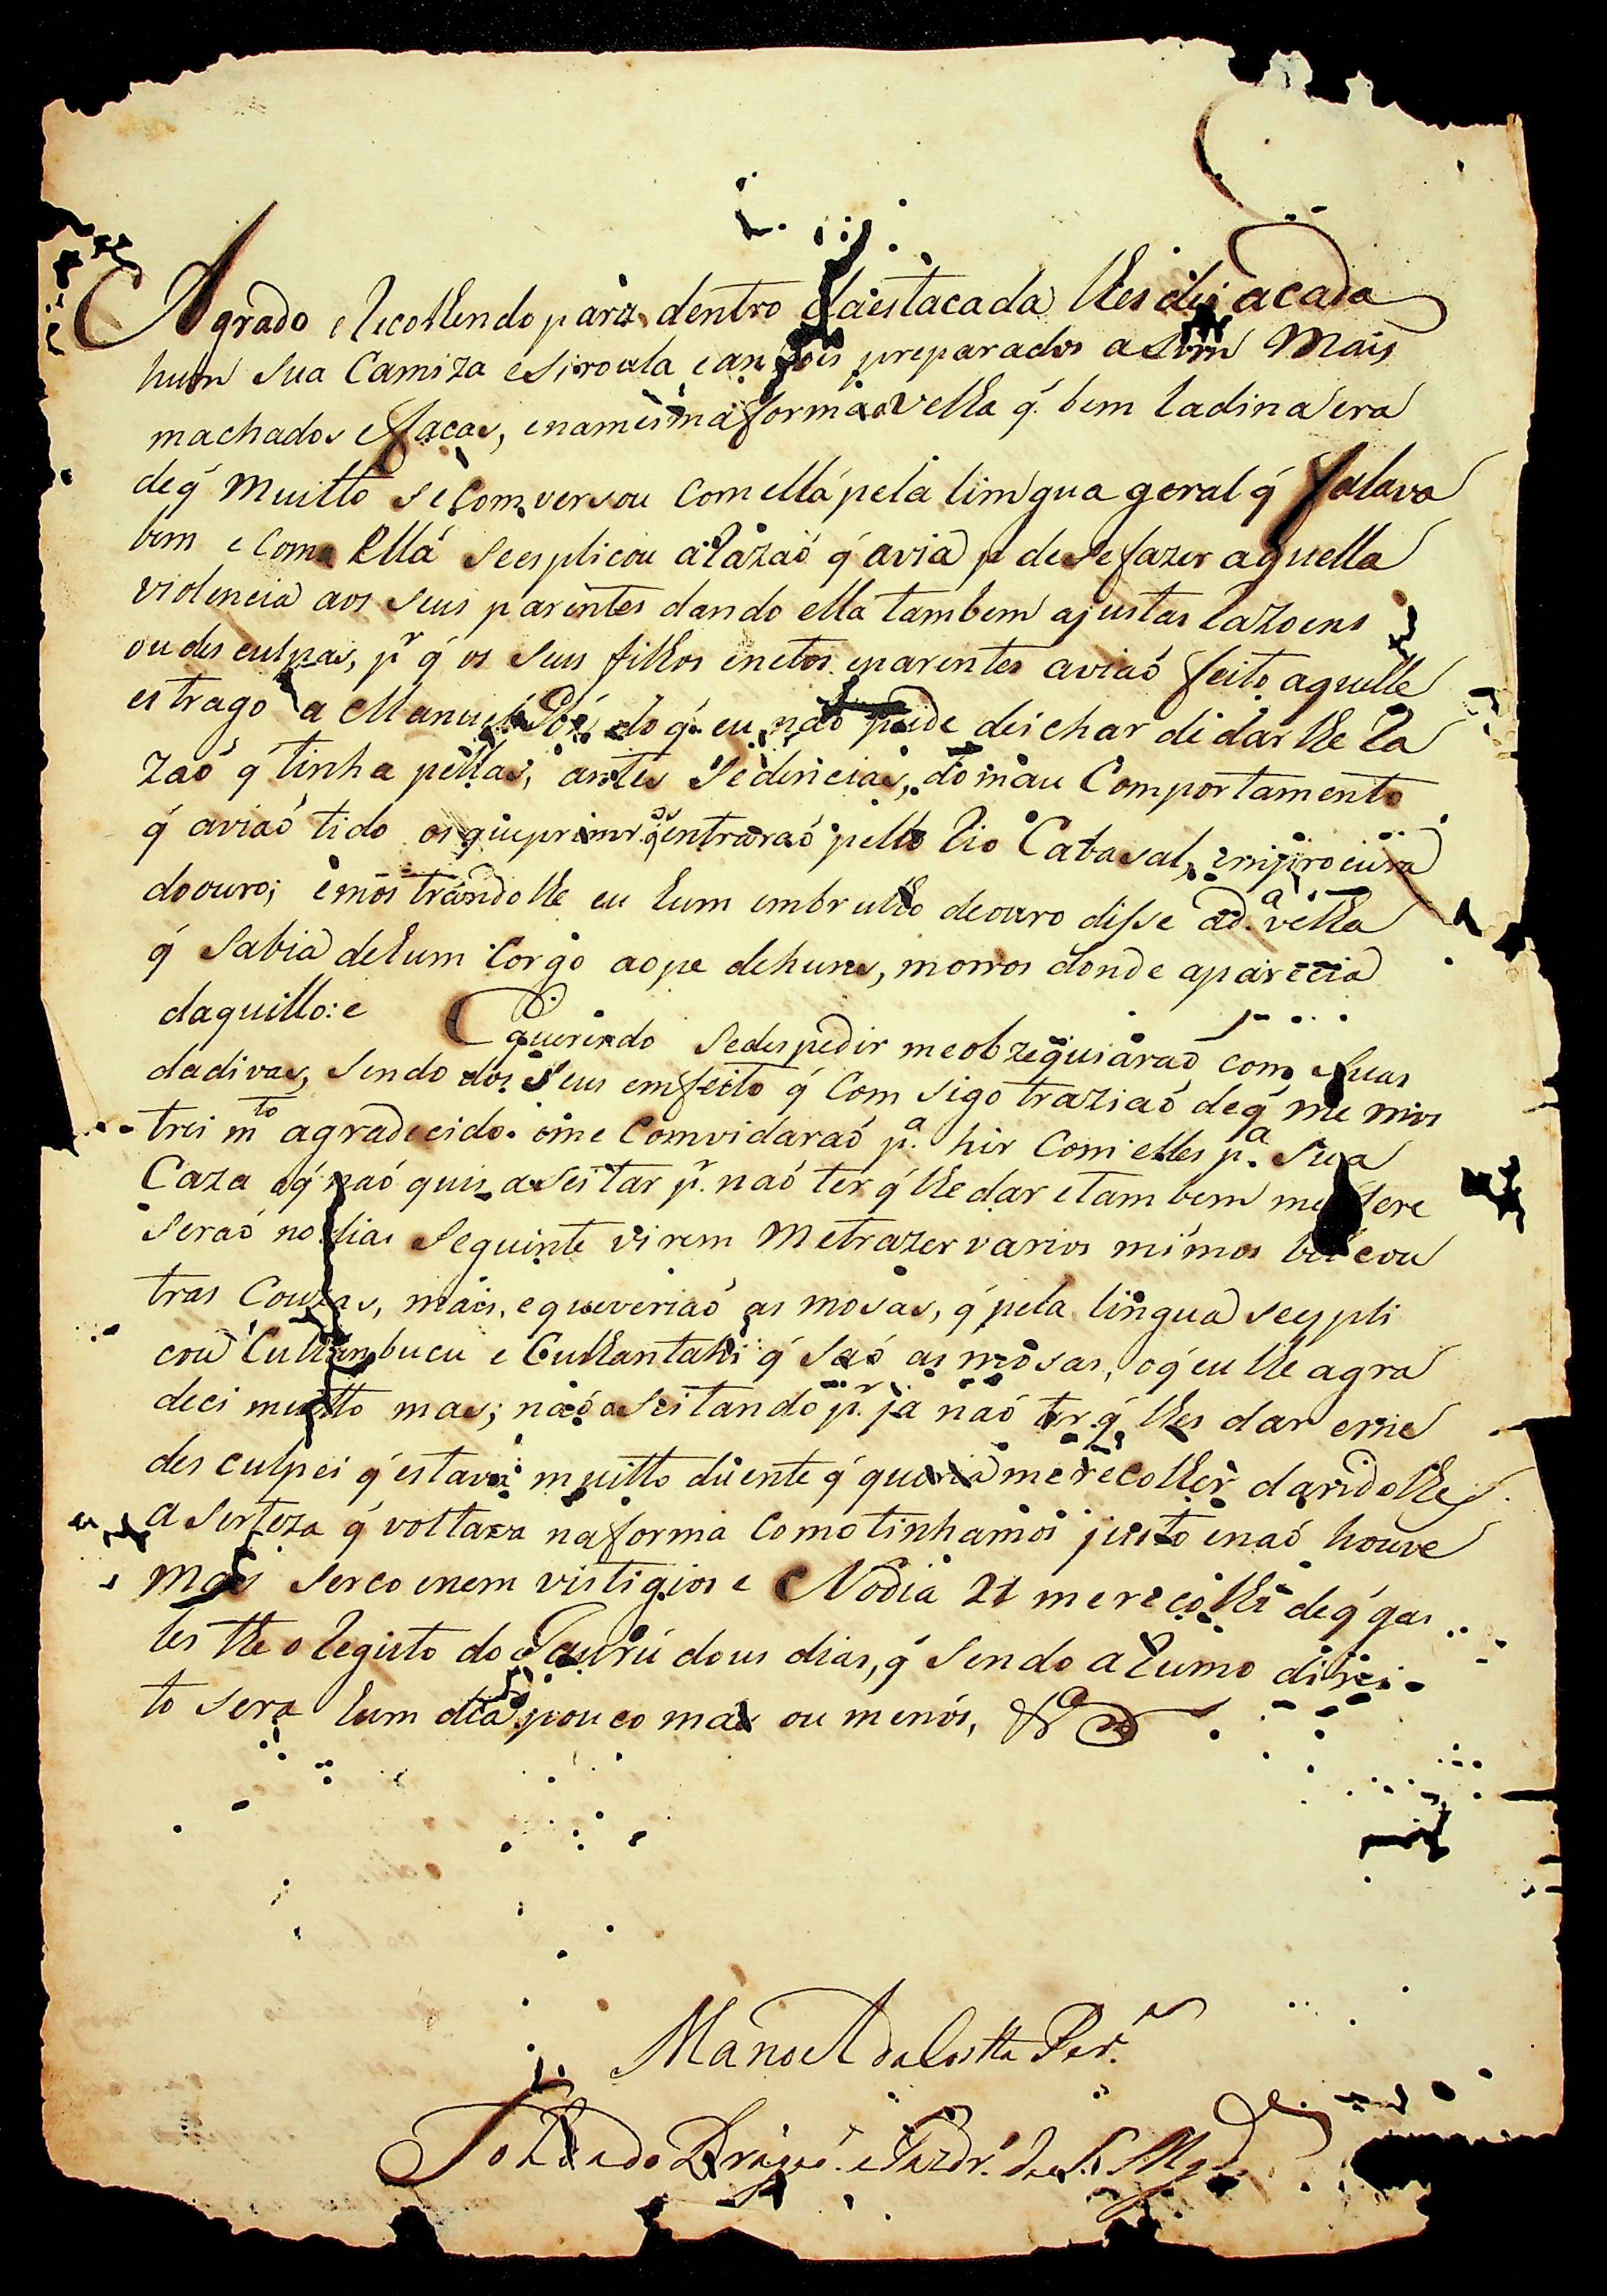 Agrado e Recolhendo para dentro daestacada lhes dei acada
hum sua Camiza esiroula e anzois preparados asim Mais
machados efacas, enamesma forma a velha q̃ bem ladina era
deq̃ Muitto seComversou Comella pela limgua geral q̃ falava
bem e Come Ella seesplicou aRazaõ q̃ avia p deSefazer aquella
violencia aos seus parentes dando ella tambem ajustas Razoens
oudesculpas, pr q̃ os seus filhos enetos eparentes aviaõ feito aquelle
estrago a Manuel do q̃ eu naõ pude deichar di dar lhe Ra
zaõ q̃ tinha pellas, antes Sedencias, do máu Comportamento
q̃ aviaõ tido os que primr.os entraraõ pello Rio Cabasal, em procura
do ouro; e mostrandolhe eu hum embrulho de ouro disse ad.a velha
q̃ Sabia dehum Corgo aope dehuns, morros donde aparecia
daquillo: e querendo Sedespedir meobzequiaraõ com suas
dadivas, sendo dos Seus emfeito q̃ Com sigo traziaõ deq̃ me mos
trei m.to agradecido. eme Comvidaraõ p.a hir Com elles p.a Sua
Caza oq̃ naõ quis aSeitar pr. naõ ter q̃ lhe dar e tambem me ofere
seraõ no dia Seguinte virem Metrazer varios mimos eou
tras Couzas, mais, e queveriaõ as mosas, q̃ pela lingua seespli
cou e q̃ saõ as mosas, oq̃ eu lhe agra
deci muitto mas; naõ aSeitando pr. ja naõ ter q̃ lhes dar eme
desculpei q̃ estava muitto duente q̃ queria merecolher dandolhes
a serteza q̃ voltava naforma Como tinhamos justo enaõ houve
Mais serco enem vistigios e Nodia 21 merecolhi deq̃ gas
tes lhe o Registo do Jaurú dous dias, q̃ Sendo aRumo direi-
to sera hum dia pouco mais ou menos, &a
Manoel daCostta Per.a
Soldado Dragaõ